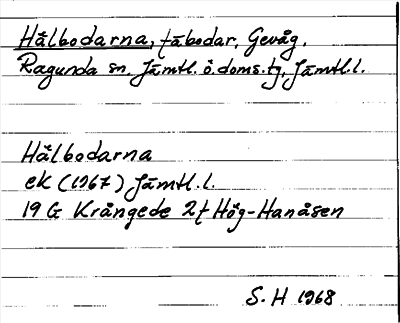 Hålbodarna, fäbodar, Gevåg,
Ragunda sn. Jämtl. ö. doms. tg, Jämtl. l.
Hålbodarna
ek (1967) Jämtl. l.
19 G Krångede 2f Hög-Hanåsen
S. H 1968